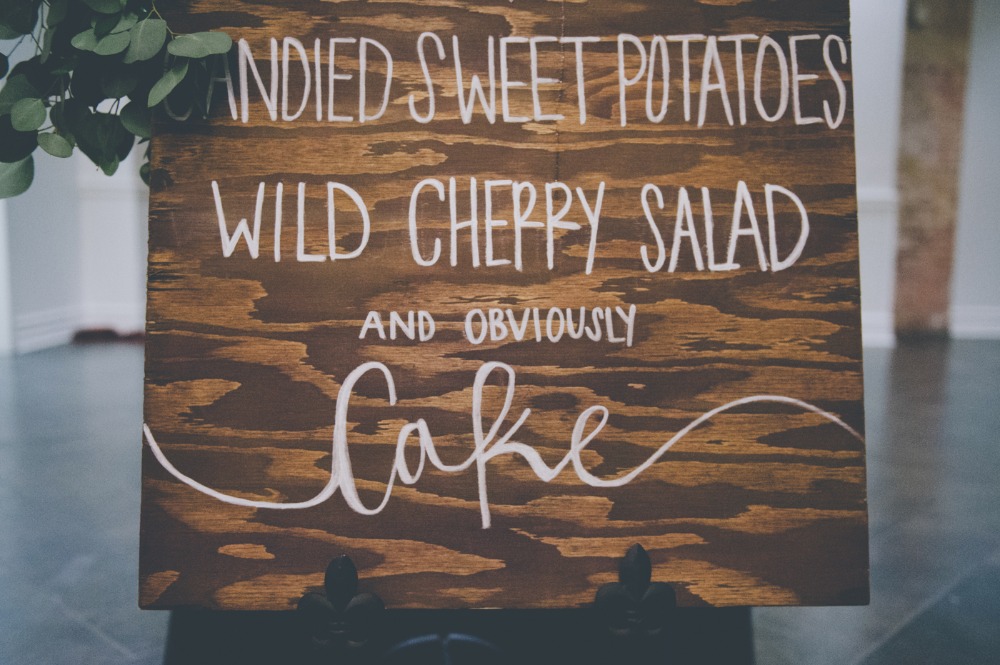 CANDIED SWEET POTATOES
WILD CHERRY SALAD
AND OBVIOUSLY
Cake